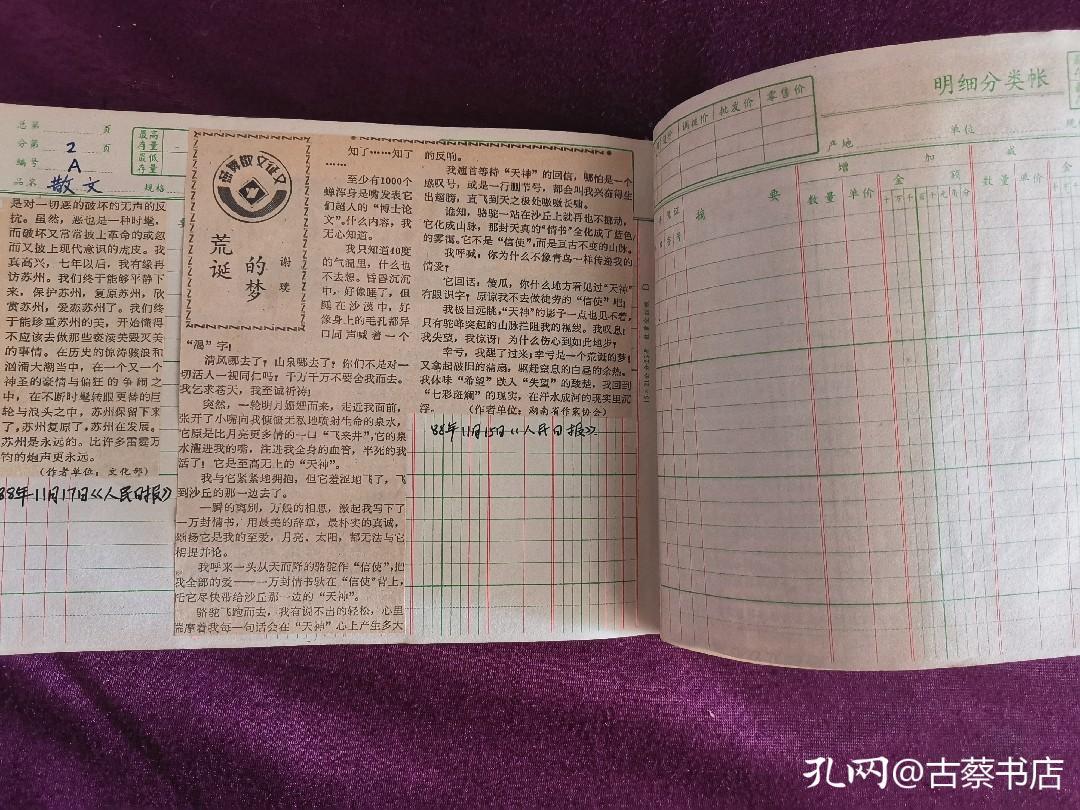 总第 页
分第 2 页
编号 A
品名 散文 规格
最高存量
最低存量
是对一切恶的破坏的无声的反
抗。虽然，恶也是一种时髦，
而破坏又常常披上革命的或忽
而又披上现代意识的虎皮。我
真高兴，七年以后，我有缘再
访苏州。我们终于能够平静下
来，保护苏州，复原苏州，欣
赏苏州，爱恋苏州了。我们终
于能珍重苏州的美，开始懂得
不应该去做那些亵渎美毁灭美
的事情。在历史的惊涛骇浪和
汹涌大潮当中，在一个又一个
神圣的豪情与偏狂的争闹之
中，在不断时髦转眼更替的巨
轮与浪头之中，苏州保留下来
了，苏州复原了，苏州在发展。
苏州是永远的。比许多雷霆万
钧的炮声更永远。
（作者单位：文化部）
88年11月17日《人民日报》
散文征文
荒诞的梦
谢璞
知了……知了
……
至少有1000个
蝉浑身是嘴发表它
们超人的“博士论
文”。什么内容，我
无心知道。
我只知道40度
的气温里，什么也
不去想。昏昏沉沉
中，好像睡了，但
睡在沙漠中，好
像身上的毛孔都异
口同声喊着一个
“渴”字！
清风哪去了？山泉哪去了？你们不是对一
切活人一视同仁吗？千万千万不要舍我而去。
我乞求苍天，我至诚祈祷！
突然，一轮明月姗姗而来，走近我面前，
张开了小嘴向我慷慨无私地喷射生命的泉水，
它原是比月亮更多情的一口“飞来井”，它的泉
水灌进我的嘴，注进我全身的血管，半死的我
活了！它是至高无上的“天神”。
我与它紧紧地拥抱，但它羞涩地飞了，飞
到沙丘的那一边去了。
一瞬的离别，万般的相思，激起我写下了
一万封情书，用最美的辞章，最朴实的真诚，
颂扬它是我的至爱，月亮、太阳，都无法与它
相提并论。
我呼来一头从天而降的骆驼作“信使”，把
我全部的爱——一万封情书驮在“信使”背上，
托它尽快带给沙丘那一边的“天神”。
骆驼飞跑而去，我有说不出的轻松，心里
揣摩着我每一句话会在“天神”心上产生多大
的反响。
我翘首等待“天神”的回信，哪怕是一个
感叹号，或是一行删节号，都会叫我兴奋得生
出翅膀，直飞到天之极处嗷嗷长啸。
谁知，骆驼一站在沙丘上就再也不挪动，
它化成山脉，那封天真的“情书”全化成了蓝色
的雾霭。它不是“信使”，而是亘古不变的山脉。
我呼喊，你为什么不像青鸟一样传递我的
情爱？
它回话，傻瓜，你什么地方看见过“天神”
有眼识字？原谅我不去做徒劳的“信使”吧！
我极目远眺，“天神”的影子一点也见不着，
只有驼峰突起的山脉拦阻我的视线。我叹息！
我失望，我惊讶！为什么伤心到如此地步？
幸亏，我醒了过来；幸亏是一个荒诞的梦！
又拿起破旧的蒲扇，驱赶窒息的白昼的余热。
我体味“希望”跌入“失望”的酸楚，我回到
“七彩斑斓”的现实，在汗水成河的现实里沉
浮。 （作者单位：湖南省作家协会）
88年11月15日《人民日报》
明细分类帐
批发价
零售价
产地
单位
规格
摘 要
增 加
数量 单价 金 额
减
数量 单价 金
孔网@古蔡书店